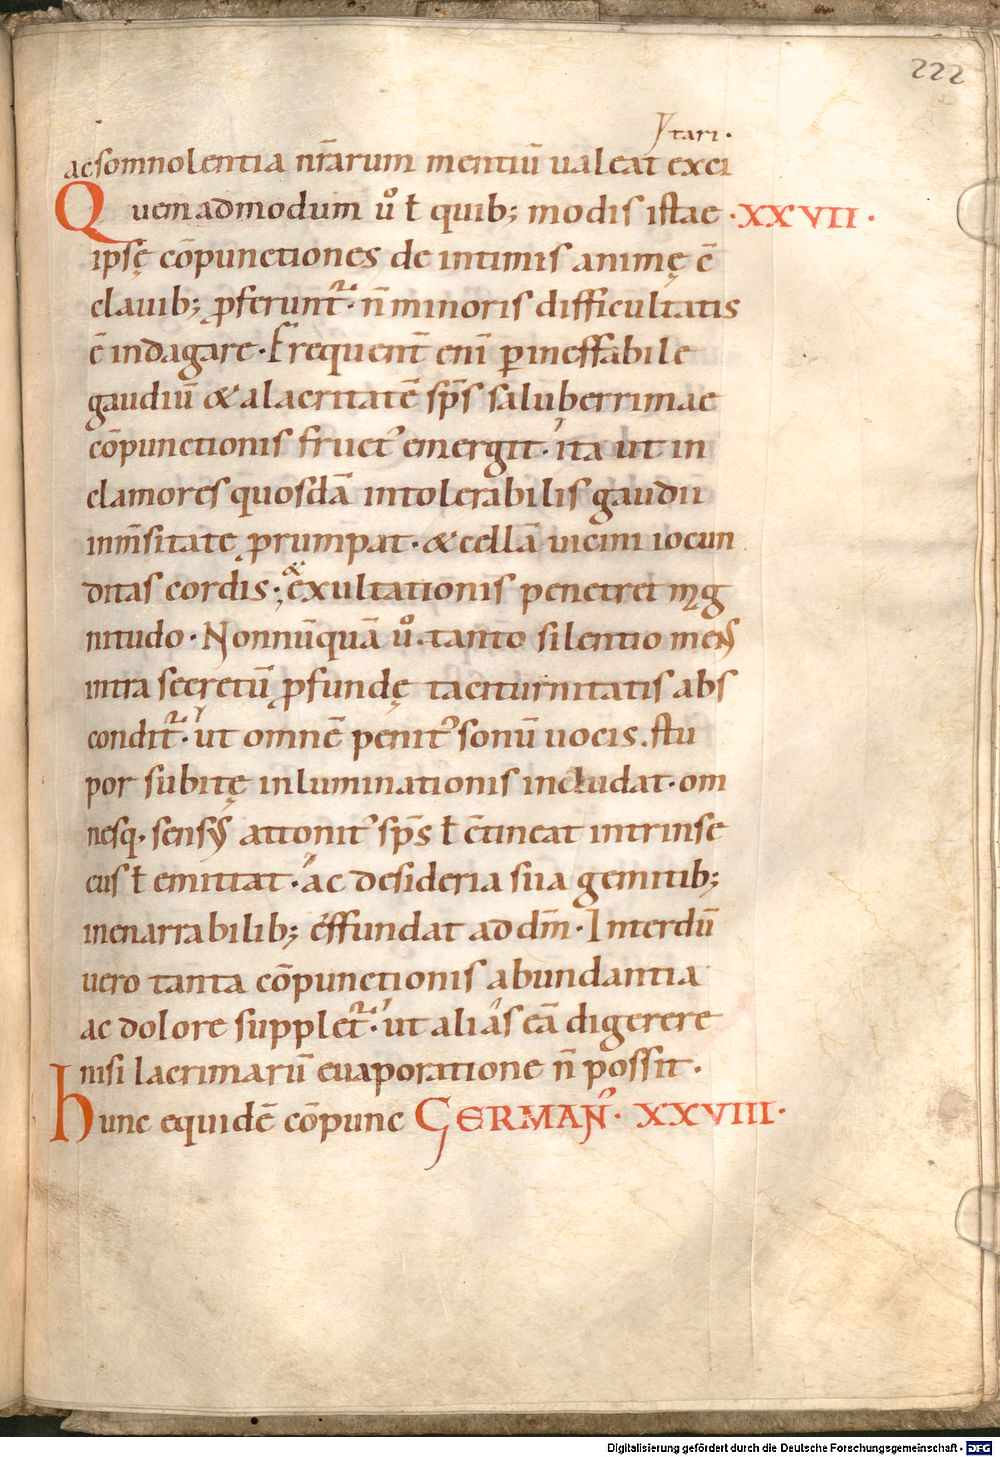 222
ytari·
ac somnolentia nr̄arum mentiū ualeat exci
Quemadmodum u͛o ł quib; modis istae ·XXVII·
ipsę cōpunctiones de intimis animę c̄
clauib; ꝓferunt̄᷑· n̄ minoris difficultatis
ē indagare· Frequent̄ enī ꝑ ineffabile
gaudiū & alacritatē sp̄s saluberrimae
cōpunctionis fruct᾽ emergit· ita ut in
clamores quosdā intolerabilis gaudii
inm̄sitate ꝓrumpat· & cellā uicini iocun
ditas cordis·; & exultationis penetret mag
nitudo· Nonnūquā uͦ· tanto silentio mens
intra secretū ꝓfundę taciturnitatis abs
condit᷑· ut omnē penit᾽ sonū uocis. stu
por subitę inluminationis includat· om
nesq· sensus attonit᾽ sp̄s ł c̄tineat intrinse
cus ł emittat· ac desideria sua gemitib;
inenarrabilib; effundat ad dm̄· Interdū
uero tanta cōpunctionis abundantia
ac dolore supplet᷑· ut alias eā digerere
nisi lacrimarū euaporatione n̄ possit·
hunc equidē cōpunc GERMAN᾽· XXVIII·
Digitalisierung gefördert durch die Deutsche Forschungsgemeinschaft - DFG